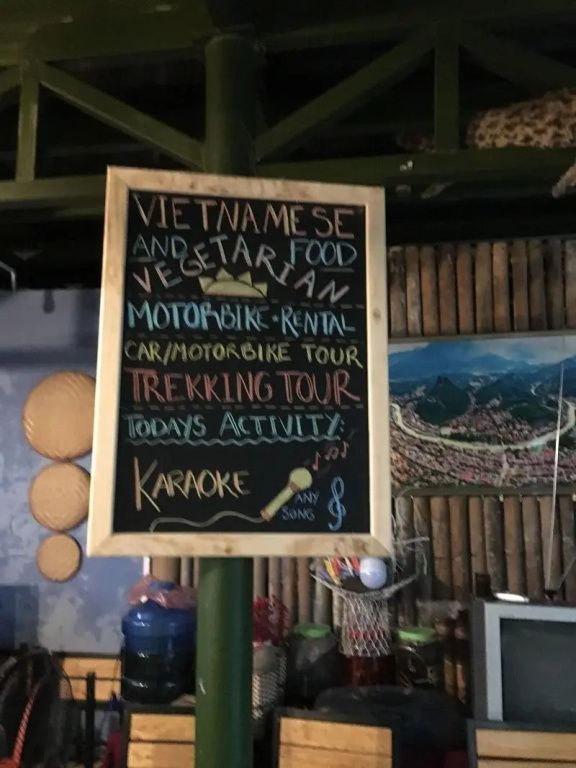 VIETNAMESE
AND VEGETARIAN FOOD
MOTORBIKE-RENTAL
CAR/MOTORBIKE TOUR
TREKKING TOUR
TODAYS ACTIVITY:
KARAOKE
ANY
SONG